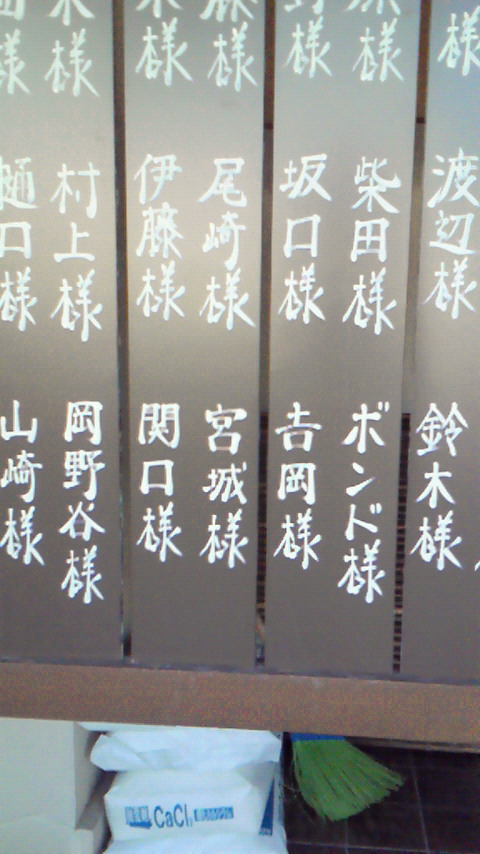 様
渡辺様
鈴木様
様
柴田様
ボンド様
様
坂口様
吉岡様
様
尾崎様
宮城様
木様
伊藤様
関口様
木様
村上様
岡野谷様
田様
樋口様
山崎様
CaCl₂